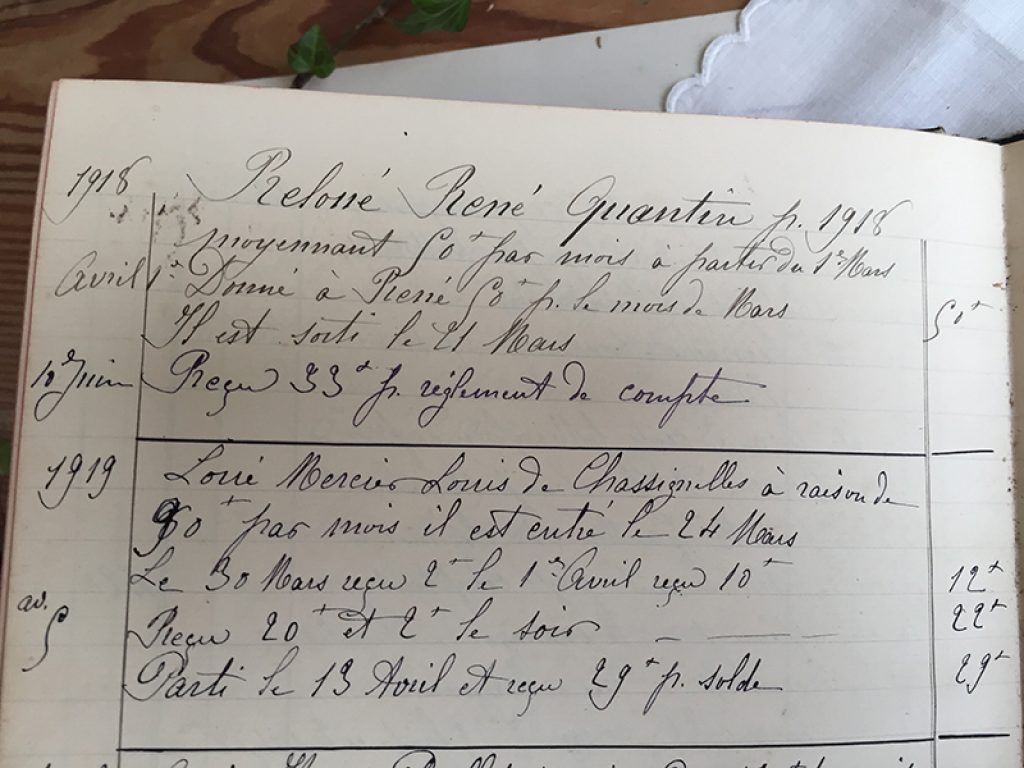 1918 Reloué René Quantin p. 1918
moyennant 50+ par mois à partir du 1er Mars
Avril 1er Donné à René 50+ p. le mois de Mars 50+
Il est sorti le 21 Mars
10 Juin Reçu 33+ p. réglement de compte
1919 Loué Mercier Louis de Chassignelles à raison de
90+ par mois il est entré le 24 Mars
Le 30 Mars reçu 2+ le 1er Avril reçu 10+ 12+
av. 5 Reçu 20+ et 2+ le soir 22+
Parti le 13 Avril et reçu 29+ p. solde 29+